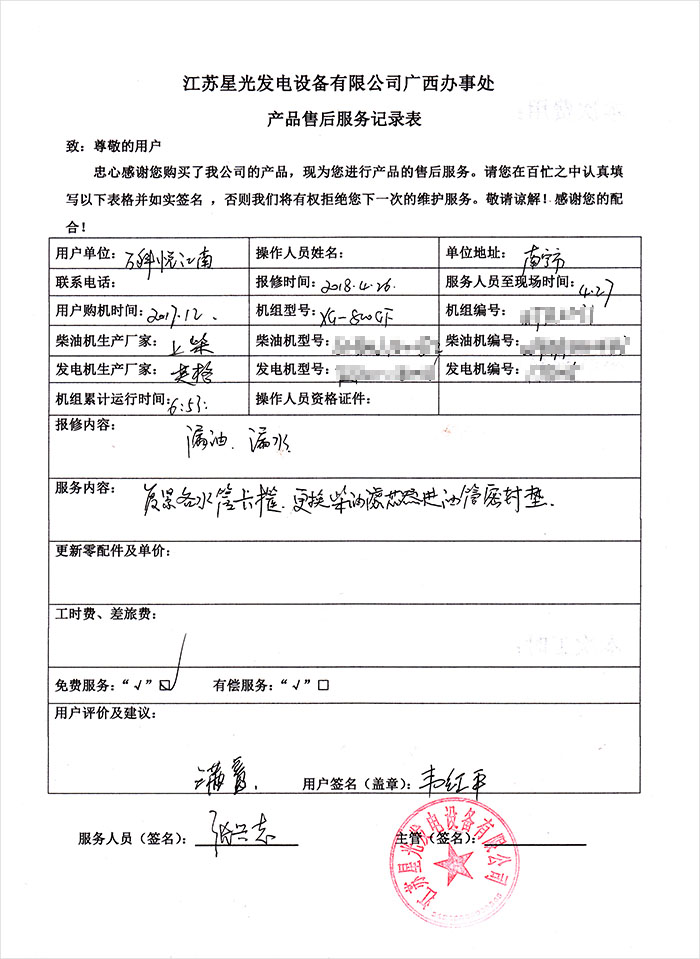 江苏星光发电设备有限公司广西办事处
产品售后服务记录表
致：尊敬的用户
忠心感谢您购买了我公司的产品，现为您进行产品的售后服务。请您在百忙之中认真填
写以下表格并如实签名 ，否则我们将有权拒绝您下一次的维护服务。敬请谅解！感谢您的配
合！
用户单位：万科悦江南 操作人员姓名： 单位地址：南宁市
联系电话： 报修时间：2018.4.26 服务人员至现场时间：4.27
用户购机时间：2017.12. 机组型号：XG-800GF 机组编号：
柴油机生产厂家：上柴 柴油机型号： 柴油机编号：
发电机生产厂家： 发电机型号： 发电机编号：
机组累计运行时间：6:53 操作人员资格证件：
报修内容：
漏油、漏水
服务内容：
各水管卡箍、更换柴油滤芯进油管密封垫.
更新零配件及单价：
工时费、差旅费：
免费服务：“√”☑ 有偿服务：“√”□
用户评价及建议：
满意. 用户签名（盖章）：韦红平
服务人员（签名）：张兴志 主管（签名）：
江苏星光发电设备有限公司